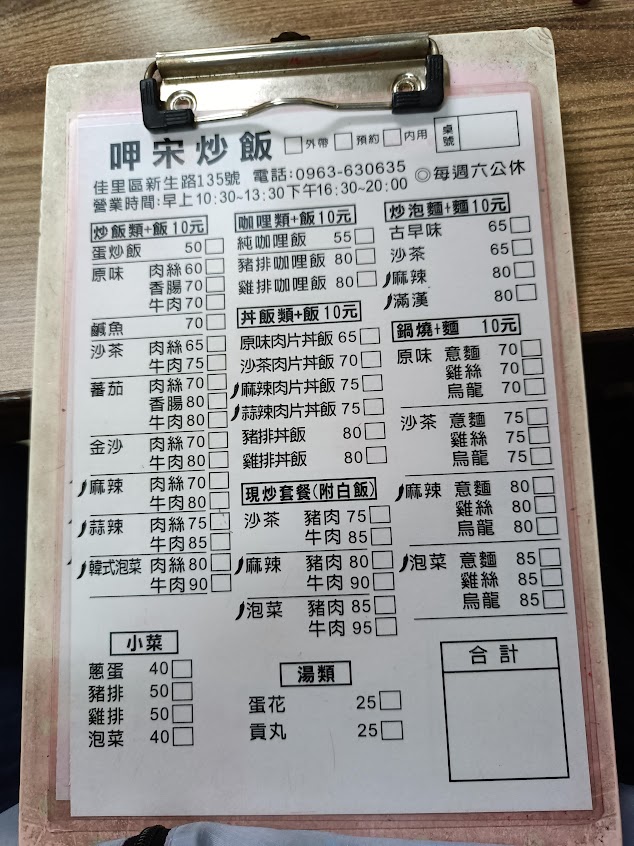 呷宋炒飯 □外帶 □預約 □內用 桌號
佳里區新生路135號 電話:0963-630635
營業時間:早上10:30~13:30下午16:30~20:00 ◎每週六公休
炒飯類+飯10元
蛋炒飯 50□
原味 肉絲60□
香腸70□
牛肉70□
鹹魚 70□
沙茶 肉絲65□
牛肉75□
蕃茄 肉絲70□
香腸80□
牛肉80□
金沙 肉絲70□
牛肉80□
麻辣 肉絲70□
牛肉80□
蒜辣 肉絲75□
牛肉85□
韓式泡菜 肉絲80□
牛肉90□
小菜
蔥蛋 40□
豬排 50□
雞排 50□
泡菜 40□
咖哩類+飯10元
純咖哩飯 55□
豬排咖哩飯 80□
雞排咖哩飯 80□
丼飯類+飯10元
原味肉片丼飯 65□
沙茶肉片丼飯 70□
麻辣肉片丼飯 75□
蒜辣肉片丼飯 75□
豬排丼飯 80□
雞排丼飯 80□
現炒套餐(附白飯)
沙茶 豬肉 75□
牛肉 85□
麻辣 豬肉 80□
牛肉 90□
泡菜 豬肉 85□
牛肉 95□
湯類
蛋花 25□
貢丸 25□
炒泡麵+麵10元
古早味 65□
沙茶 65□
麻辣 80□
滿漢 80□
鍋燒+麵 10元
原味 意麵 70□
雞絲 70□
烏龍 70□
沙茶 意麵 75□
雞絲 75□
烏龍 75□
麻辣 意麵 80□
雞絲 80□
烏龍 80□
泡菜 意麵 85□
雞絲 85□
烏龍 85□
合計